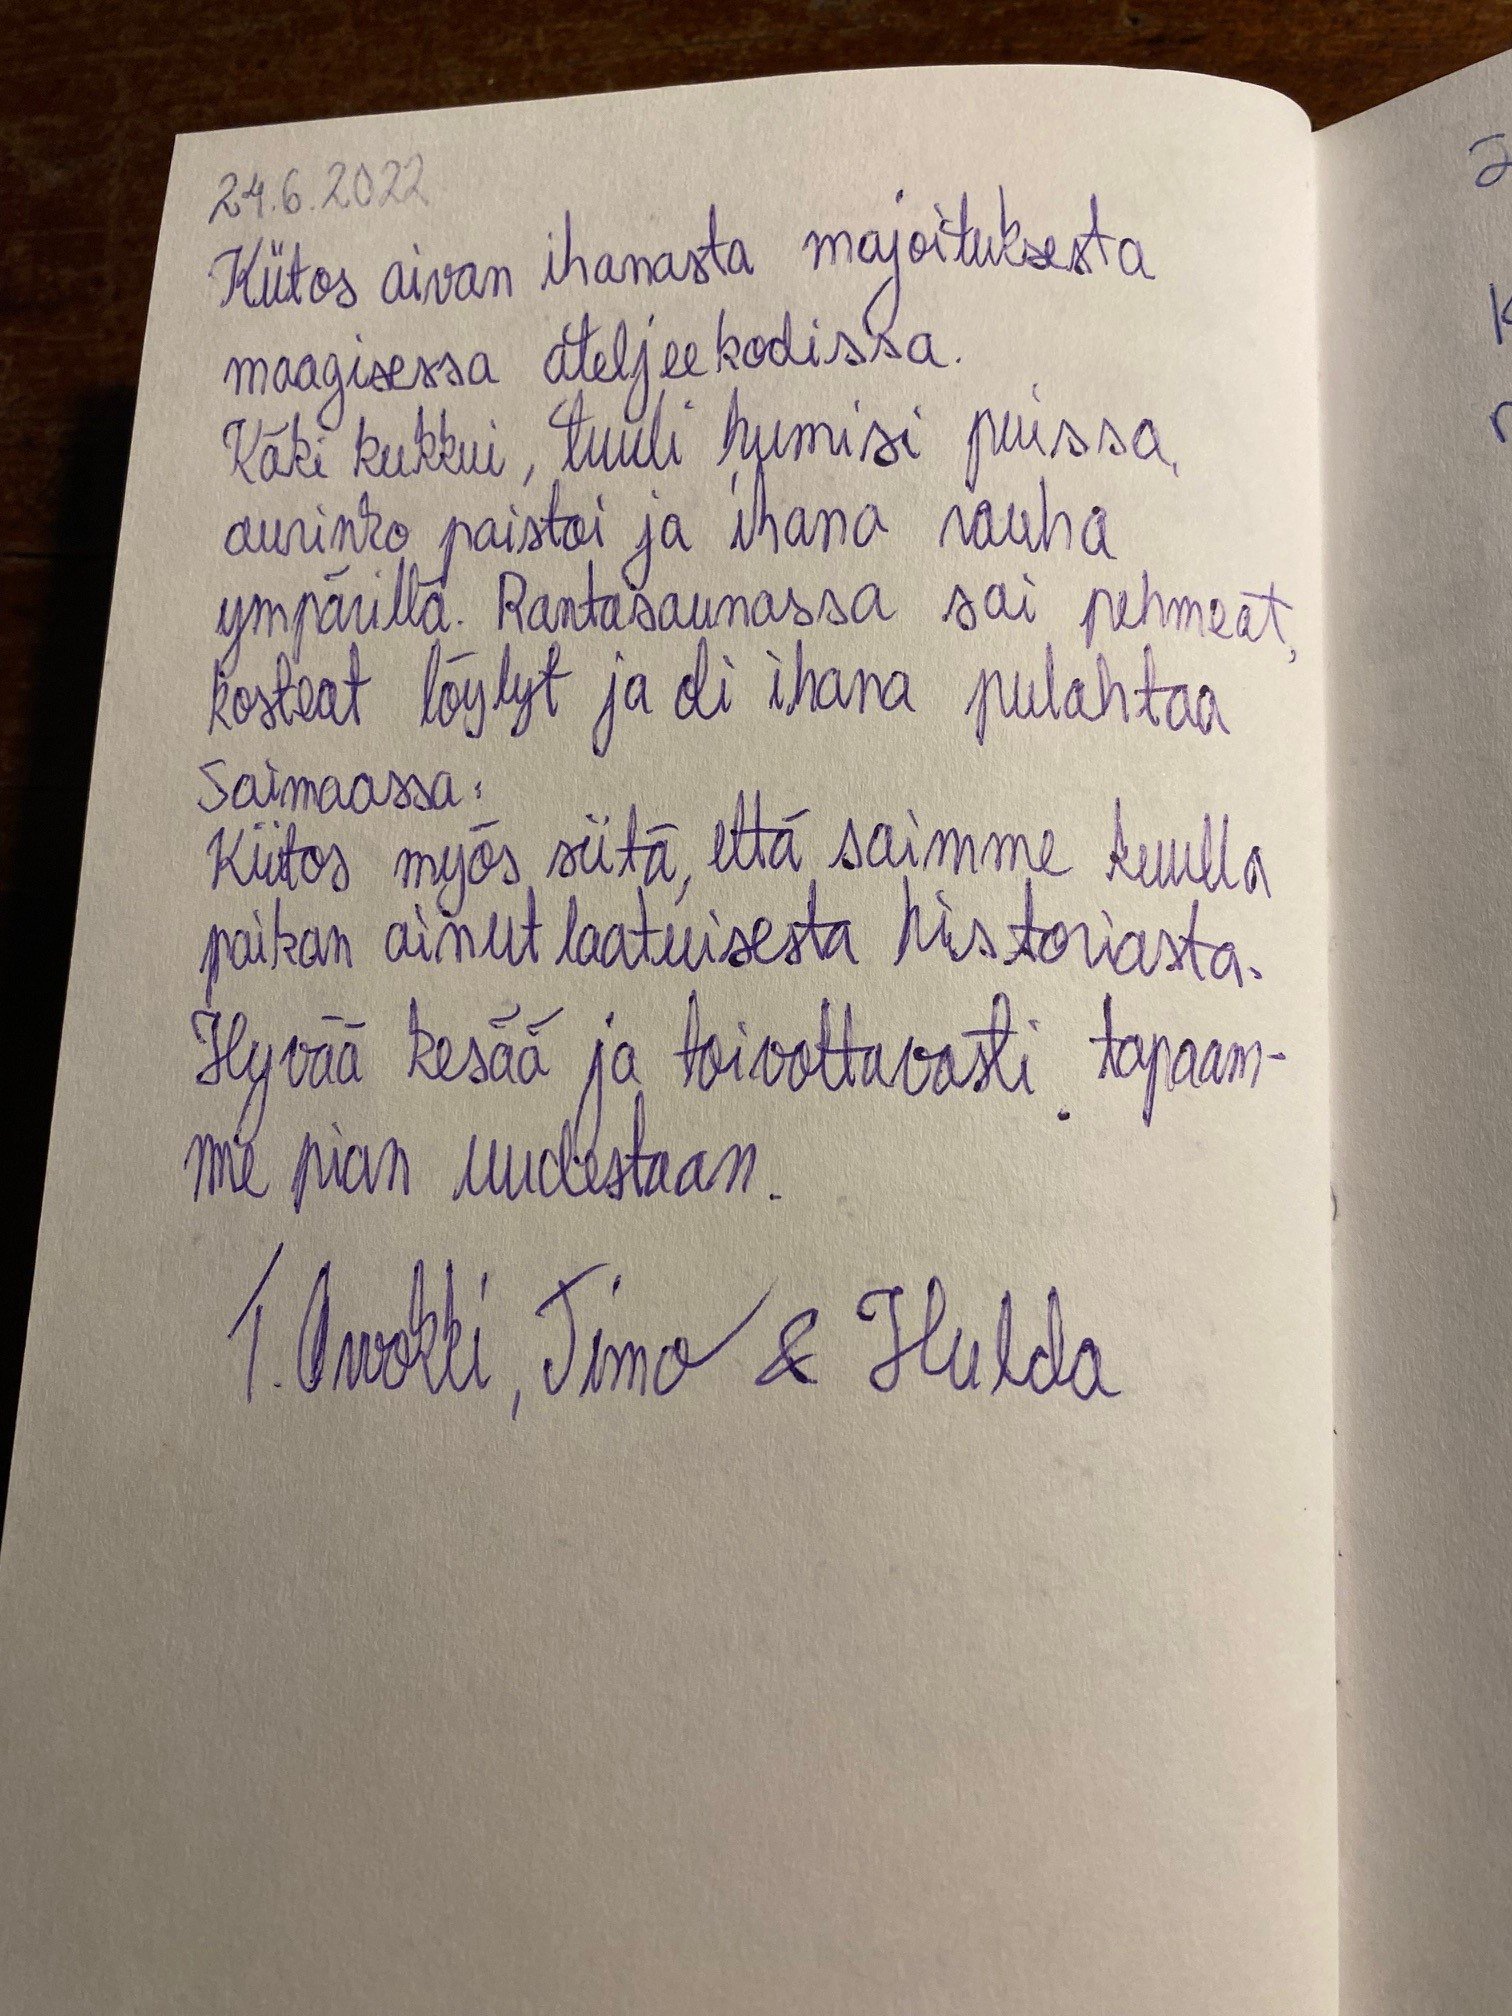 24.6.2022
Kiitos aivan ihanasta majoituksesta
maagisessa ateljeekodissa.
Käki kukkui, tuuli humisi puissa,
aurinko paistoi ja ihana rauha
ympärillä. Rantasaunassa sai pehmeät,
kosteat löylyt ja oli ihana pulahtaa
Saimaassa.
Kiitos myös siitä, että saimme kuulla
paikan ainutlaatuisesta historiasta.
Hyvää kesää ja toivottavasti tapaam-
me pian uudestaan.
T. Orvokki, Timo & Hulda